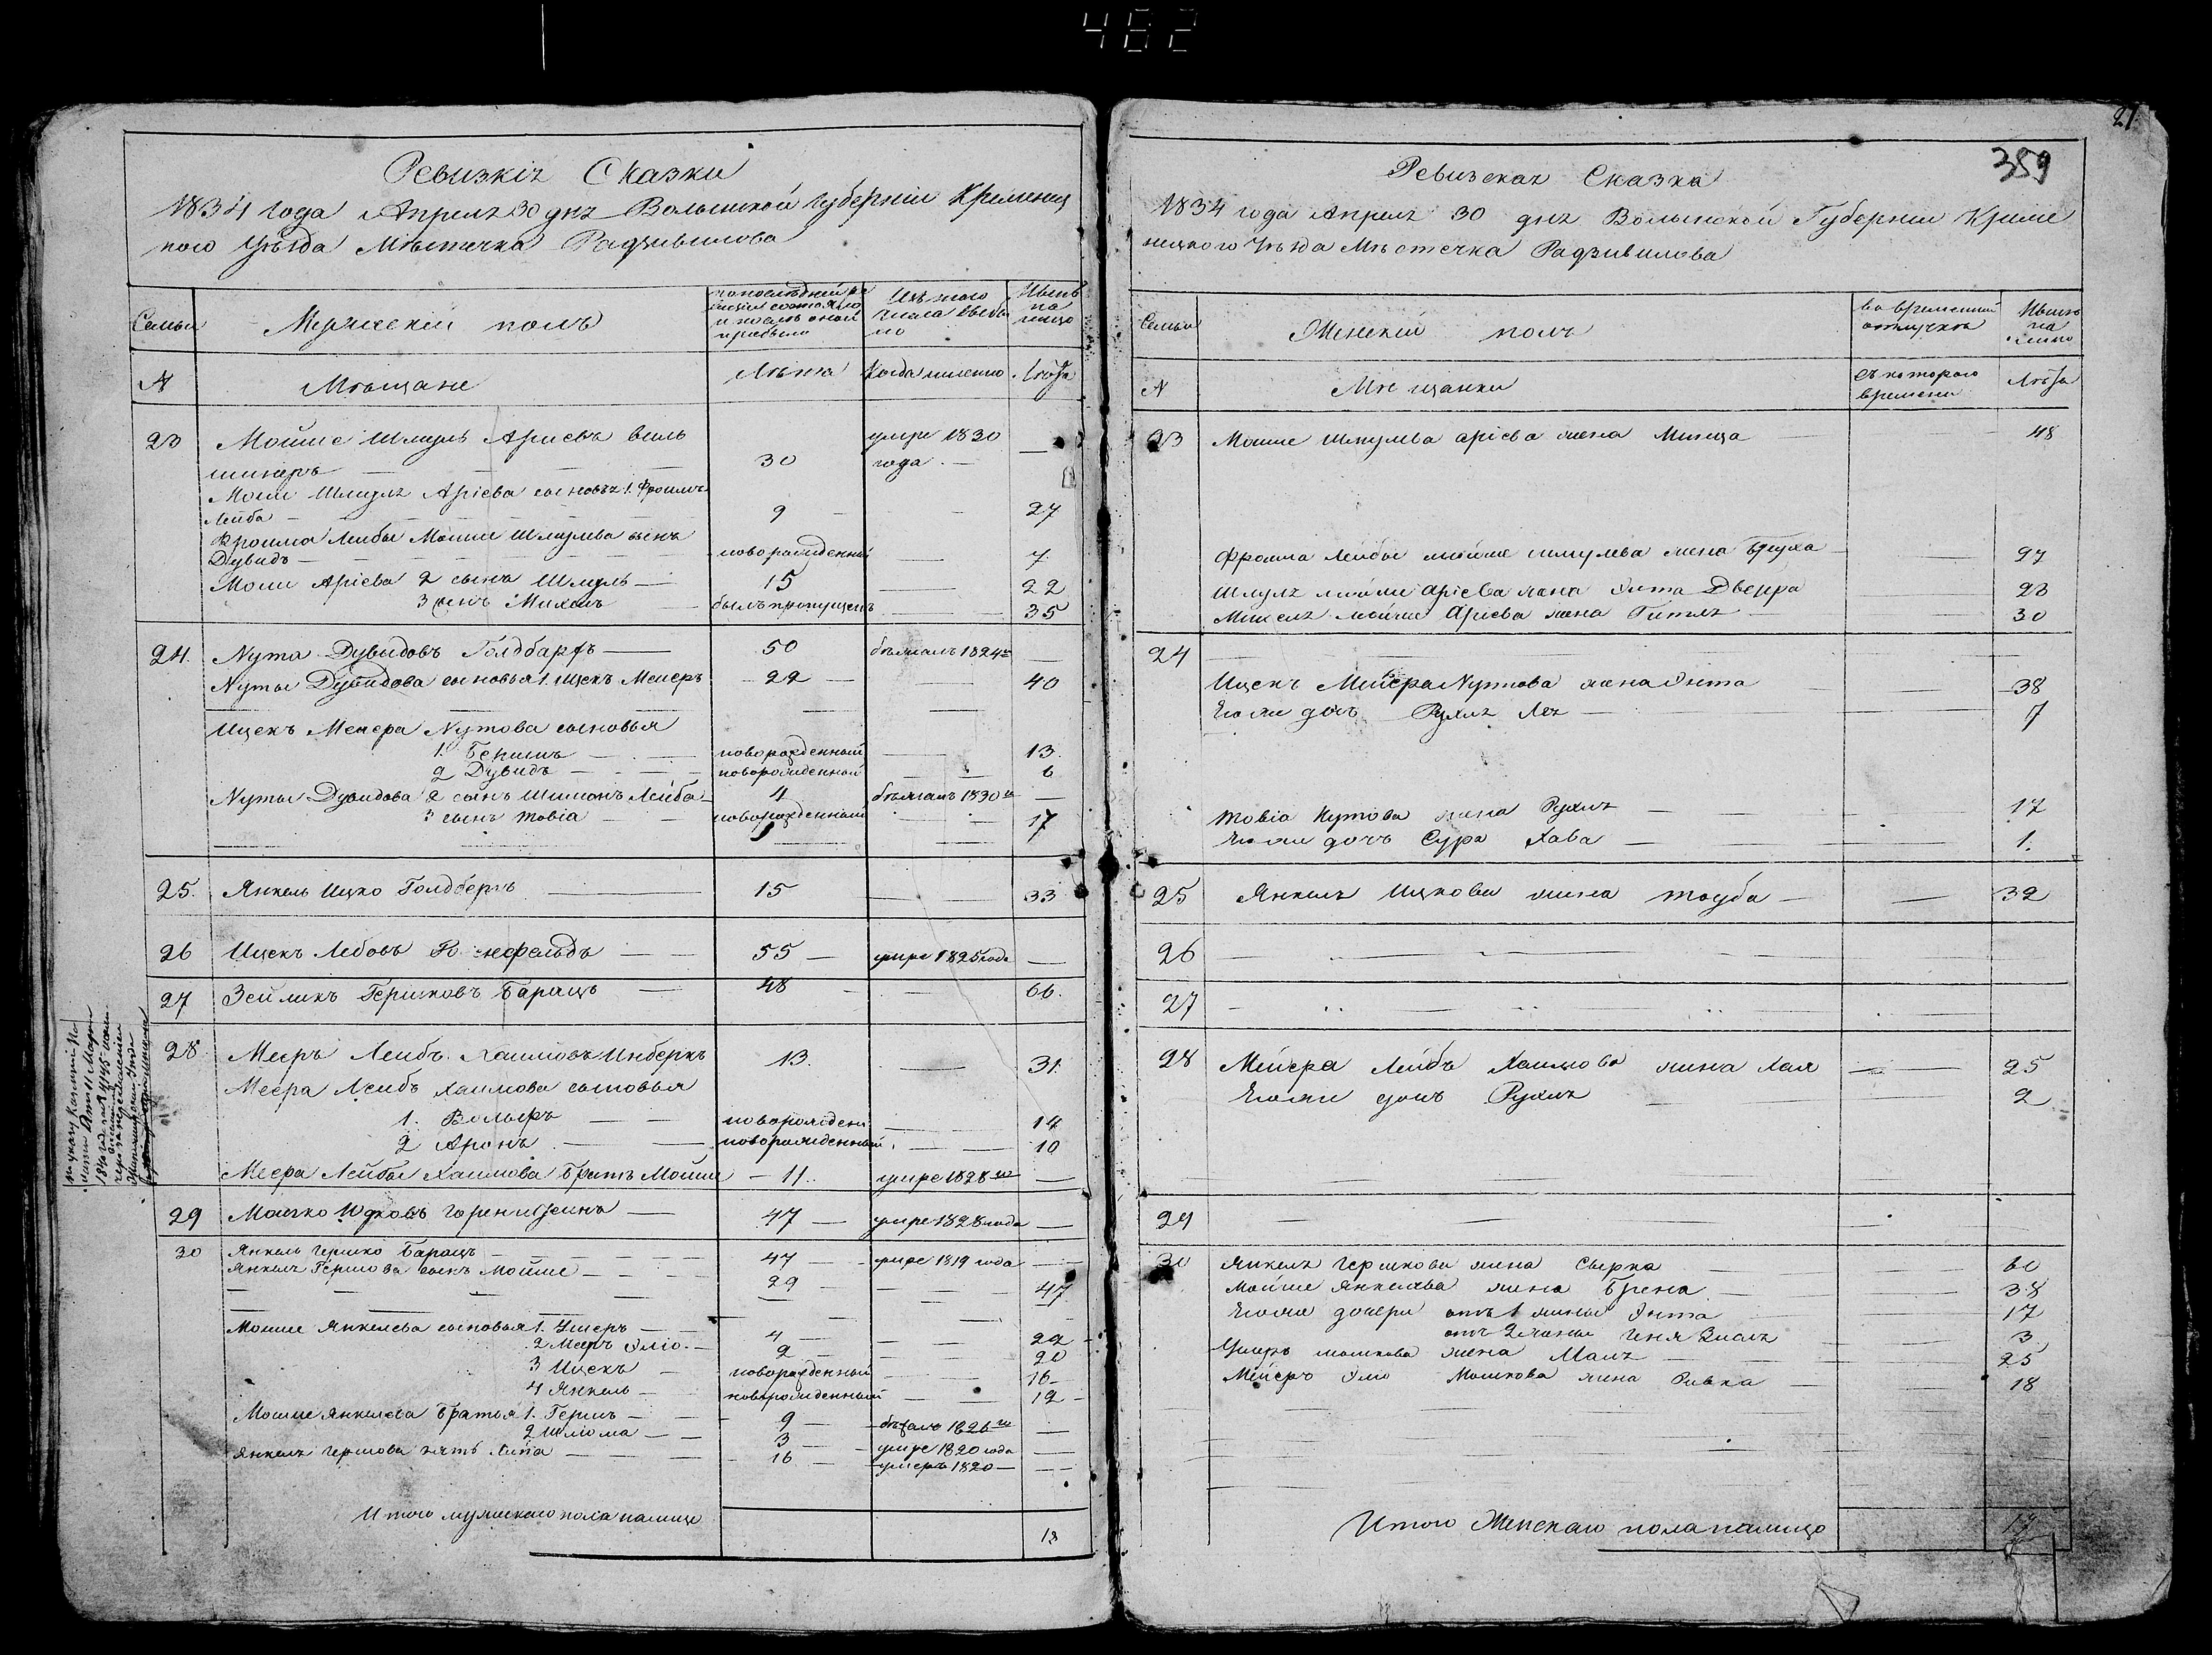 482
Ревизкія Сказки
1834 года Апреля 30 дня Волынской Губерніи Кременец
кого Уѣзда Мѣстечка Радзивилова
Семьи
Мужескій полъ
по последней ре
визіи состояло
и послѣ оной
прибыло
Изъ того
числа выбы
ло
Нынѣ
на
лицо
№
Мѣщане
Лѣта
Когда именно
Лѣта
23 Мойше Шмуль Ариевъ Вель умре 1830 —
шинеръ — 30 года. —
Моше Шмуля Аріева сыновья 1. Фроимъ
Лейба — 9 — 27
Фроима Лейбы Мойше Шмулева сынъ
Дувидъ — новорожденный — 7
Моше Аріева 2 сынъ Шмуль — 15 — 22
3 сынъ Михель был пропущенъ — 35
24. Нута Дувидовъ Голдбарфъ — 50 бѣжалъ 1824го —
Нуты Дувидова сыновья 1. Ицекъ Меиеръ — 22 — 40
Ицекъ Меиера Нутова сыновья
1. Бениш — новорожденный — 13.
2 Дувидъ — новорожденной — 6
Нуты Дувидова 2 сынъ Шимонъ Лейба — 4 бѣжалъ 1830го —
3 сынъ Товіа — новорожденный — 17
25. Янкель Ицко Голдбергъ — 15 — 33
26 Ицекъ Лебовъ — 55 — умре 1825 года —
27 Зейликъ Гершковъ Барацъ — 48 — 66.
28. Мееръ Леибъ Хаимовъ Инберкъ 13. — 31.
Меера Леибъ Хаимова сыновья
1. Вольфъ — новорожден — 14
2 Аронъ — новорожденный. — 10
Меера Лейбы Хаимова Братъ Мойше — 11.. умре 1828го —
29 Мошко Юдковъ — 47 — умре 1828 года —
30 Янкель Гершко Барацъ — 47 — умре 1819 года —
Янкеля Гершова сынъ Мойше — 29 — 47
Мойше Янкелева сыновья 1. Ушеръ — 4 — 22
2 Мееръ Эліо. — 2 — 20
3 Ицекъ — новорожденный — 16
4 Янкель — новорожденный — 12
Мойше Янкелева Братья 1. Гершъ — 9 — бѣжалъ 1826го —
2 Шлиома — 3 — умре 1820 года —
Янкеля Гершова зять Липа — 16 — умеръ 1820 —
Итого мужеского пола налицо
18
По указу Казенной Па
латы
21
359
Ревизская Сказка
1834 года Апреля 30 дня Волынской Губерніи Креме
нецкого Уѣзда Мѣстечка Радзивилова
Семьи
Женскій полъ
во временной
отлучкѣ
Нынѣ
на
лицо
№
Мѣщанки
съ которого
времени
Лѣта
23 Моше Шмулева Аріева жена Минца — 48
Фроима Лейбы Мойше Шмулева жена Бруха — 27
Шмуля Мойше Аріева жена Энта Двейра 23
Михеля Мойше Аріева жена Гитля 30
24 —
Ицекъ Меиера Нутова жена Энта — 38
Его же дочъ Рухля Лея — 7
Товіа Нутова жена Рухля — 17
Его же дочъ Сура Хава — 1.
25 Янкеля Ицкова жена Тауба — 32
26 —
27 —
28 Мейера Лейбъ Хаимова жена Хая — 25
Его же дочъ Рухля — 2
29 —
30 Янкеля Гершкова жена Сверка — 60
Мойше Янкелева жена Брена — 38
Его же дочери отъ 1 жены Энта — 17
отъ 2 жены Геня — 3
Ушеръ Мошкова жена Маля — 25
Мейеръ Эліо Мошкова жена Ривка — 18
Итого Женскаго пола налицо